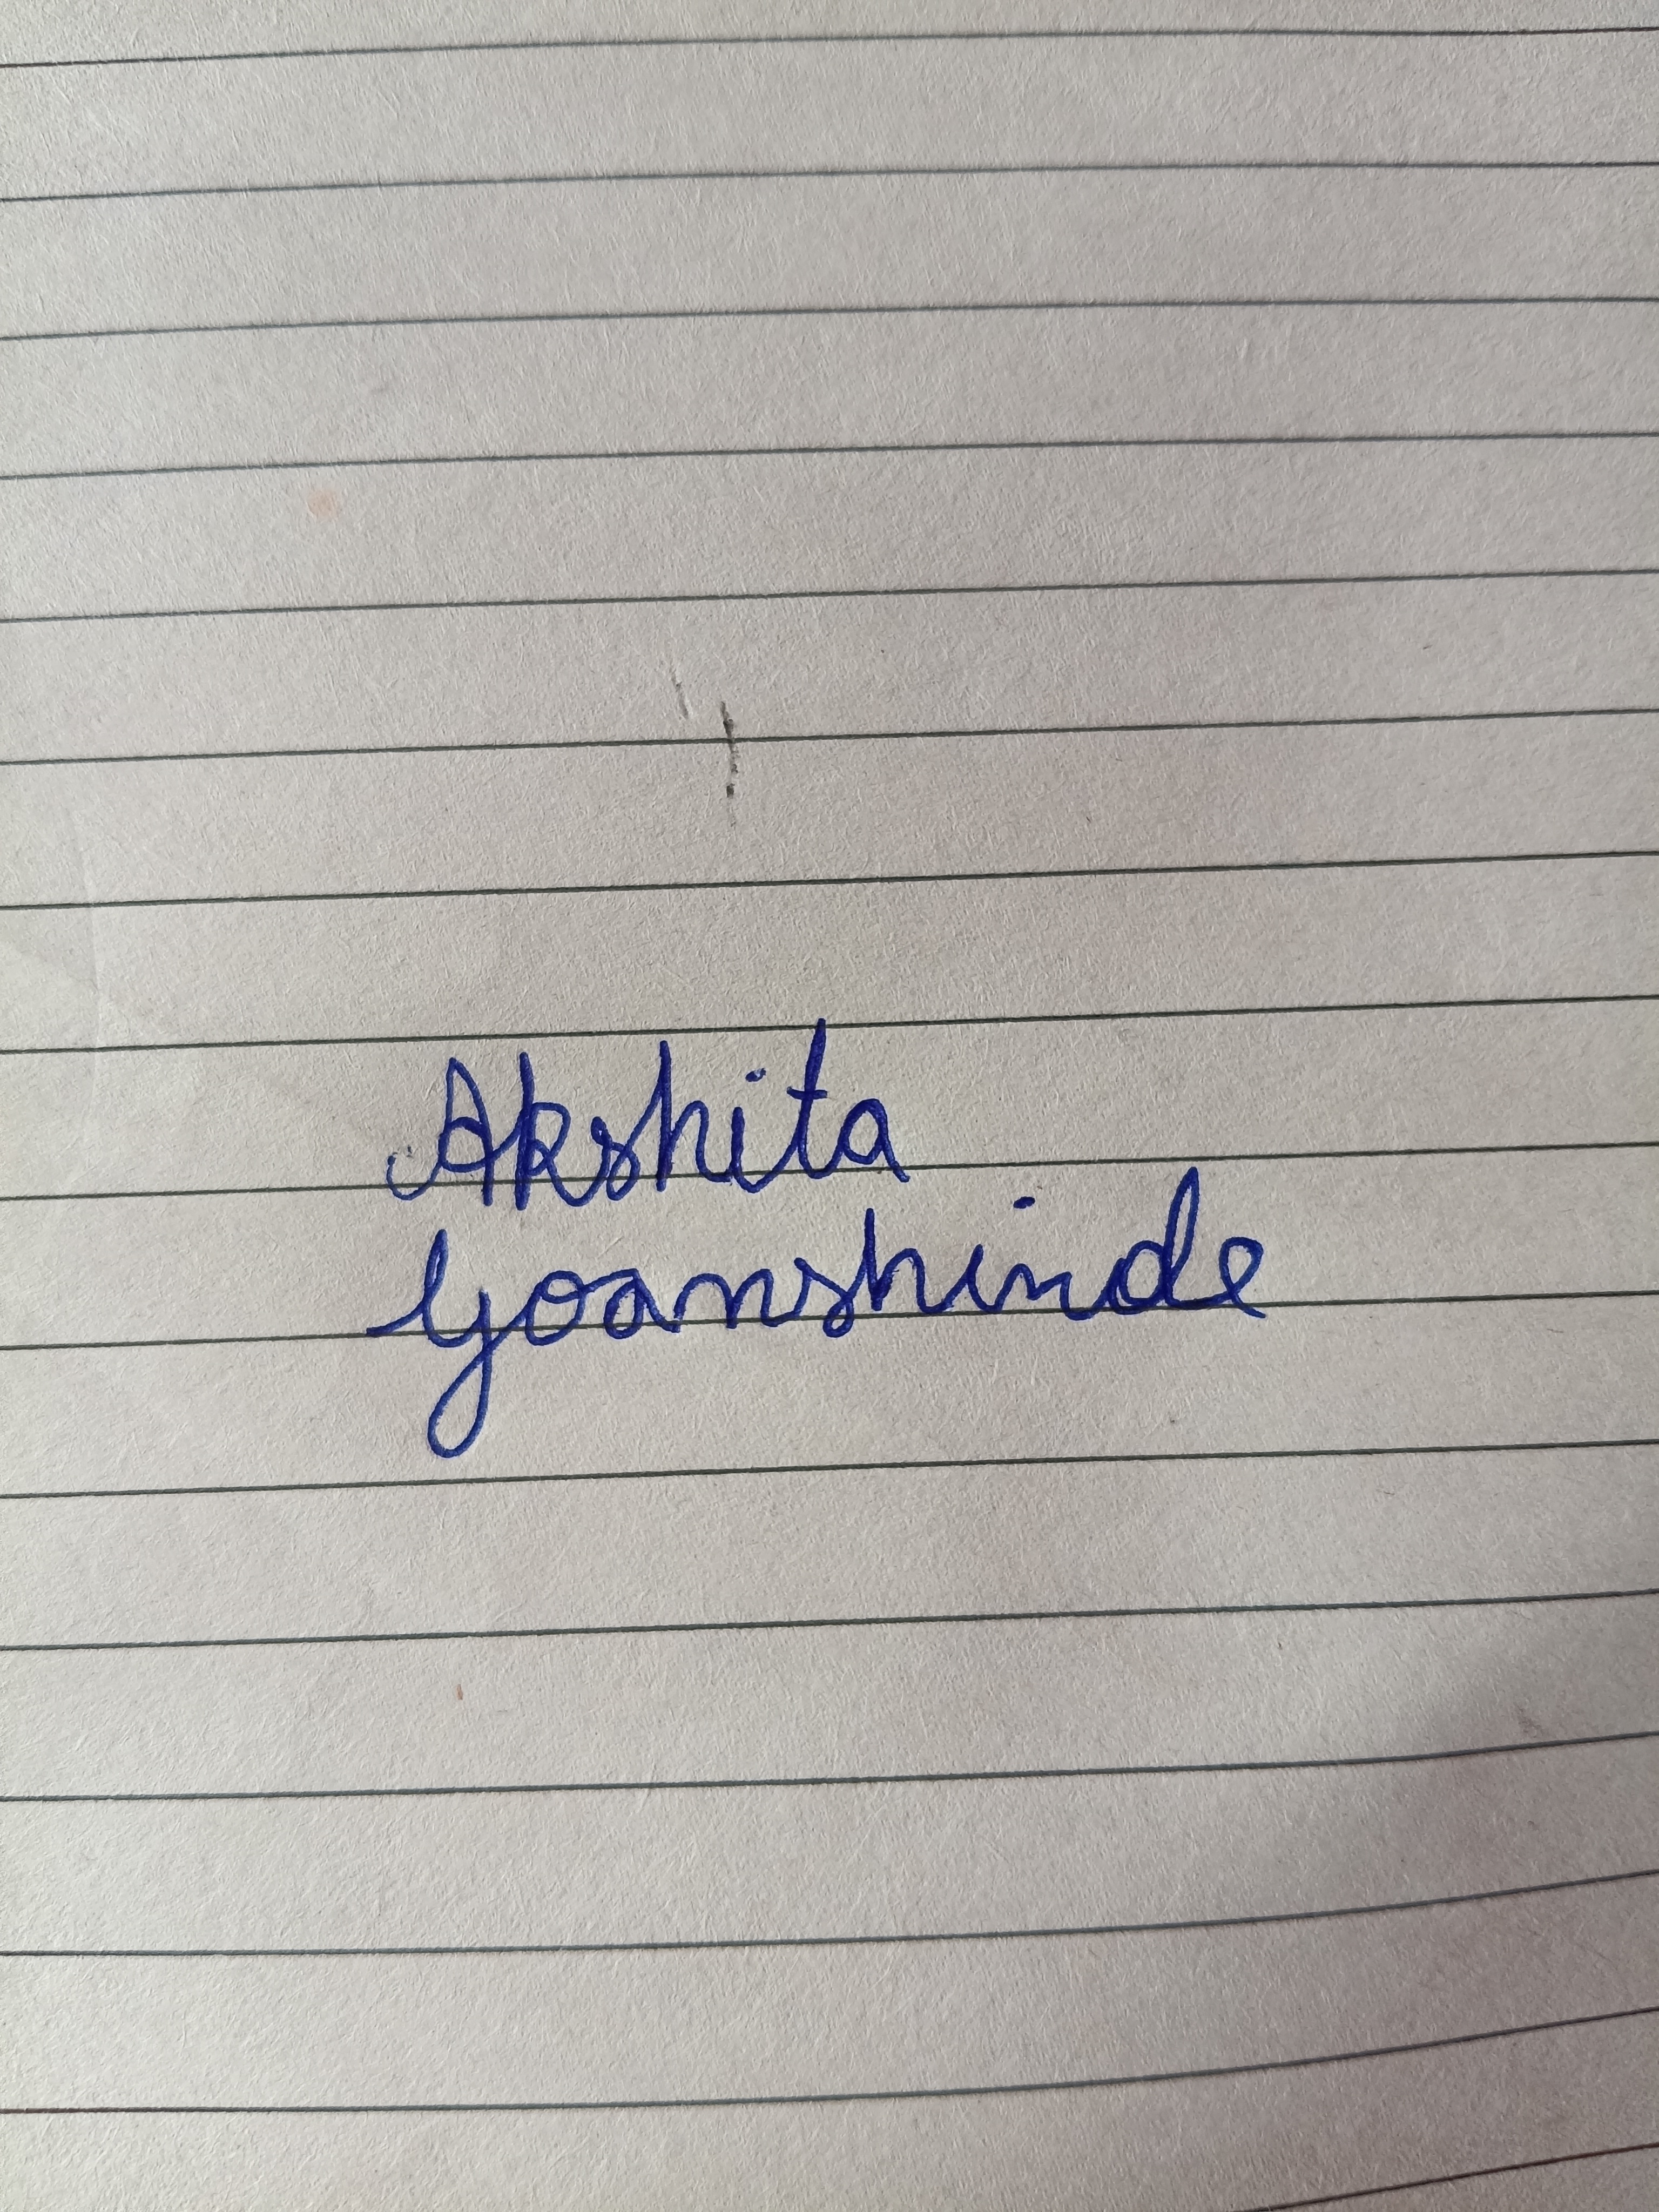 Akshita
Goanshinde